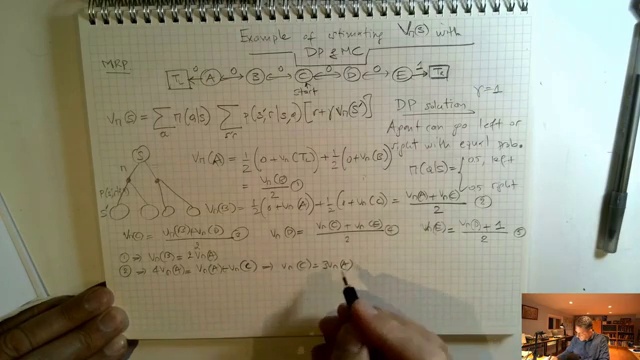 Example of estimating Vπ(S) with
DP & MC
MRP
TL 0 A 0 B 0 C 0 D 0 E 1 TR
start
Vπ(S) = Σa π(a|s) Σs',r p(s',r|s,a) [r+γVπ(S')]
DP solution γ=1
Agent can go left or
right with equal prob.
S
π
S'
Vπ(A) = 1/2 (0+Vπ(TL)) + 1/2 (0+Vπ(B))
= Vπ(B)/2 ①
π(a|s) = { 0.5, left
0.5 right
Vπ(C) = Vπ(B)+Vπ(D) / 2 ③
Vπ(D) = Vπ(C)+Vπ(E) / 2 ④
Vπ(E) = Vπ(D)+1 / 2 ⑤
① ⟹ Vπ(B) = 2Vπ(A)
② ⟹ 4Vπ(A) = Vπ(A)+Vπ(C) ⟹ Vπ(C) = 3Vπ(A)